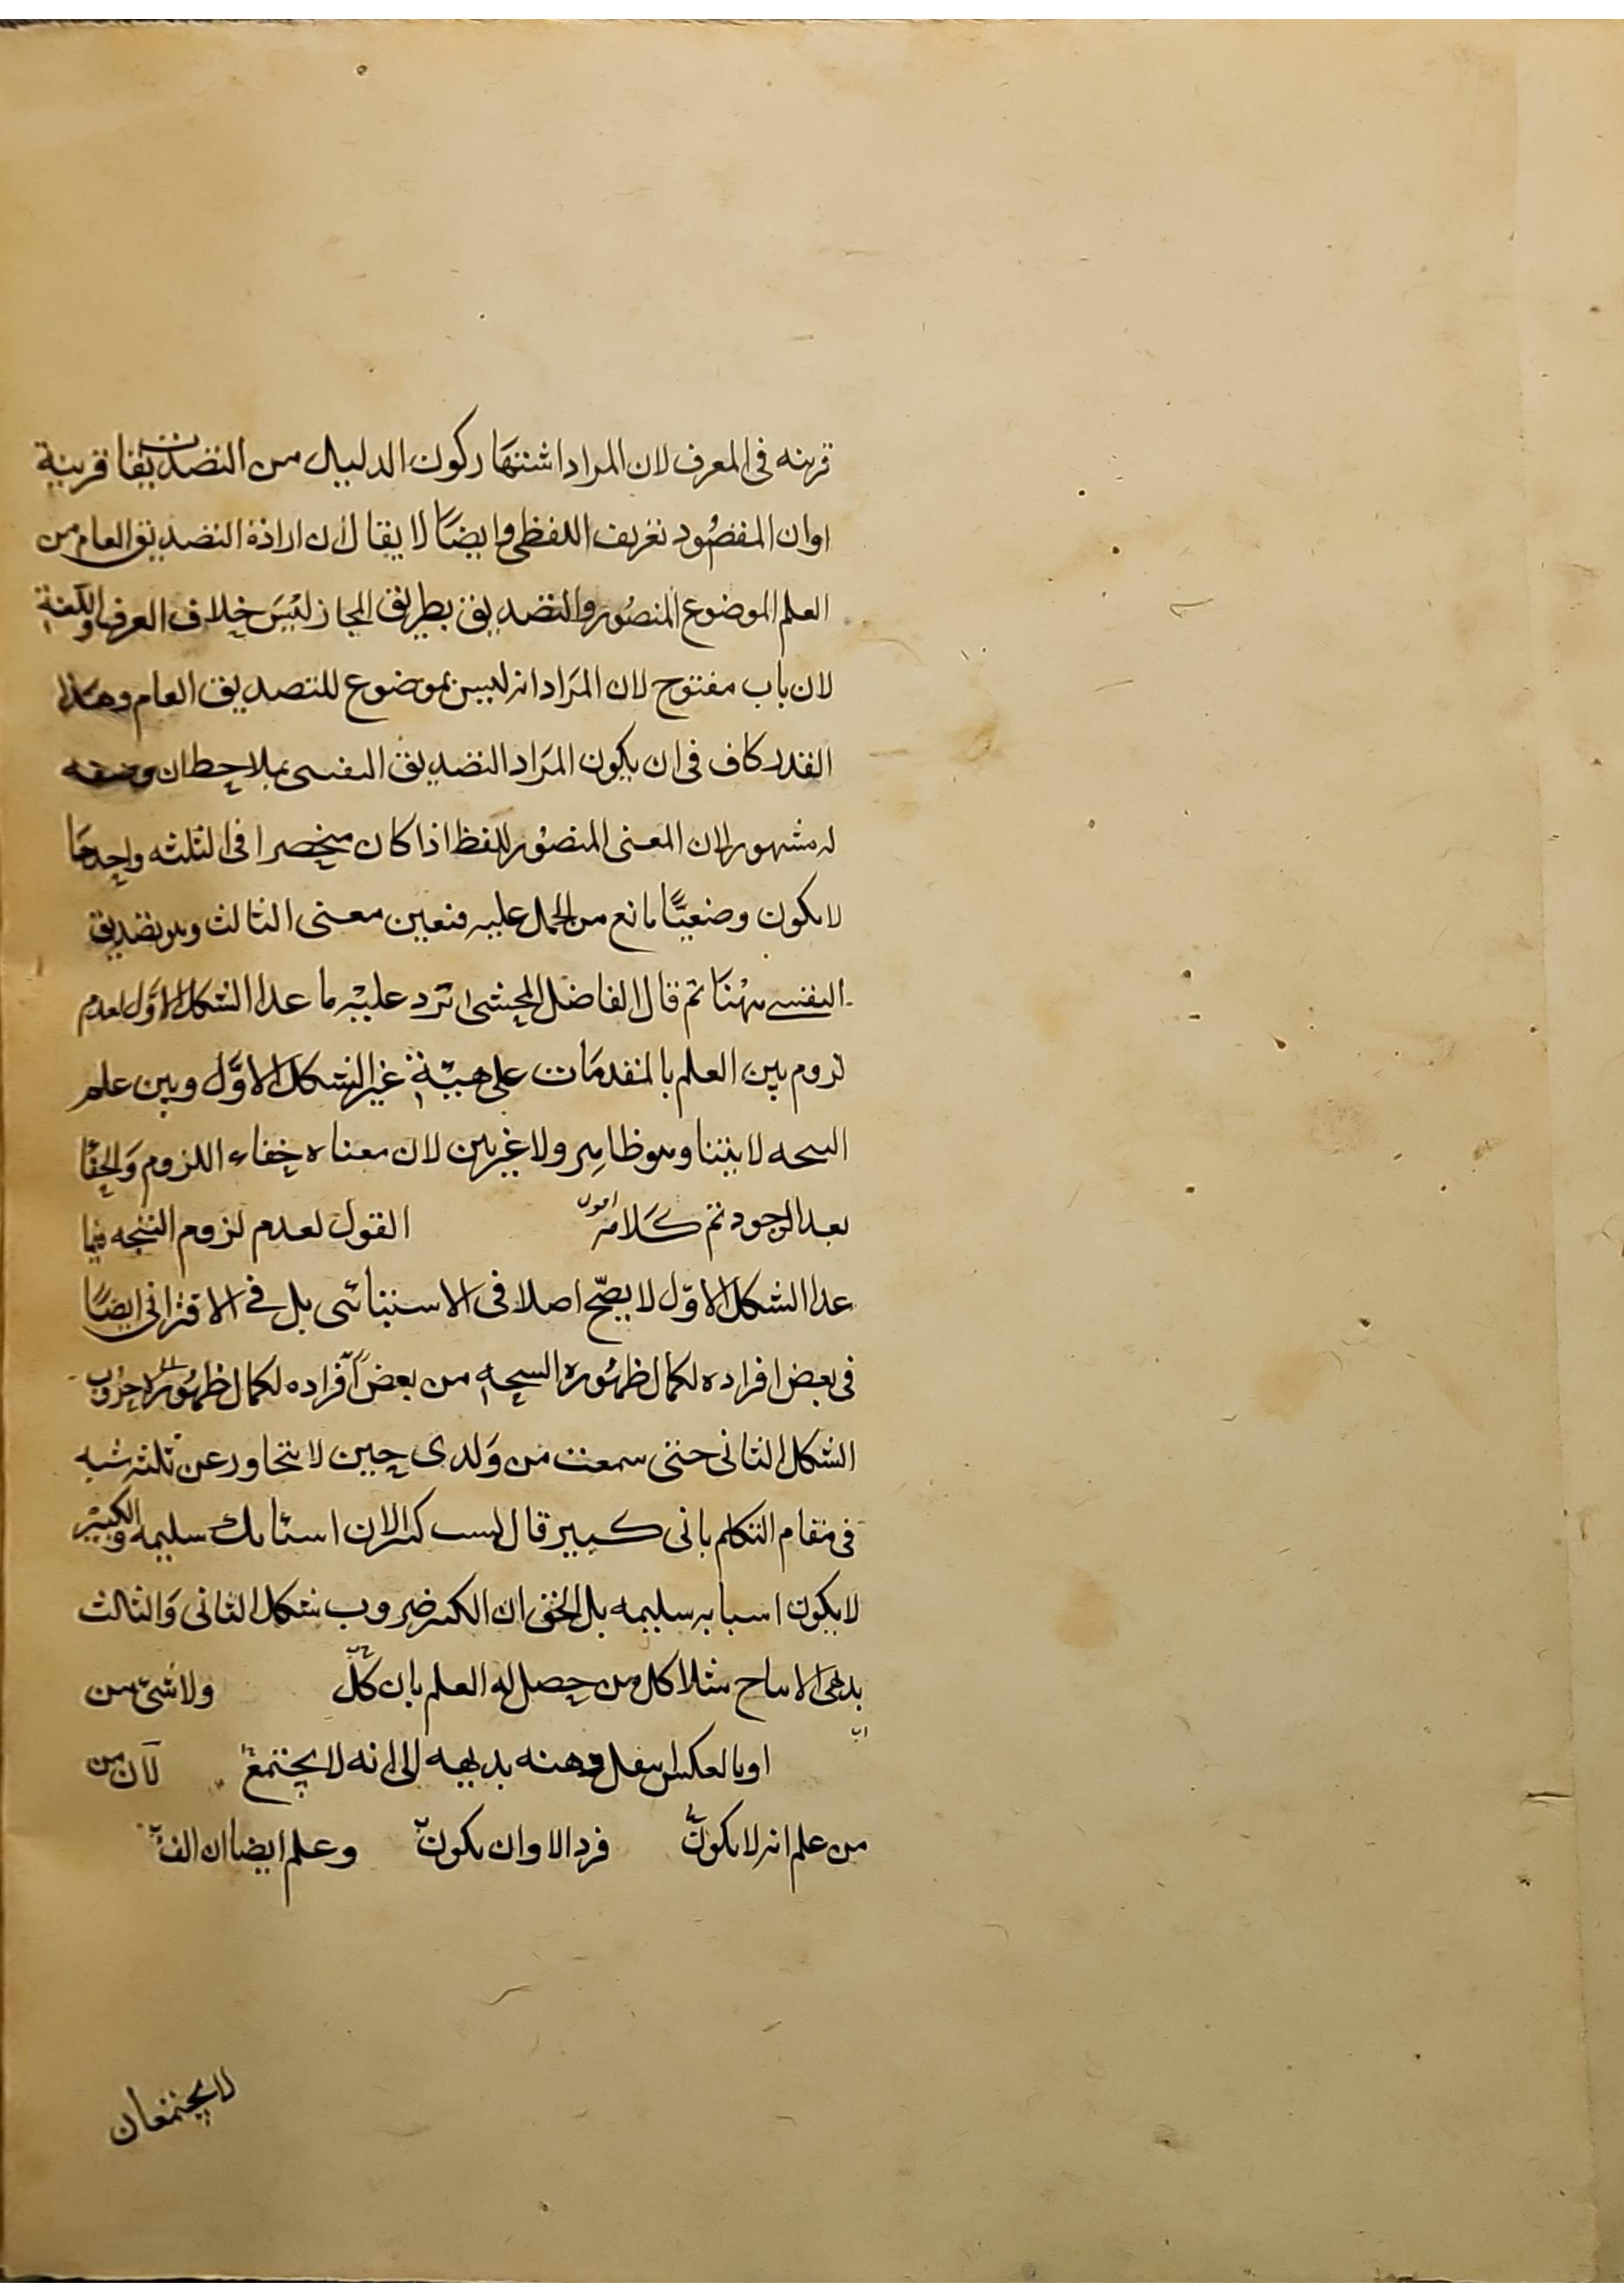 قرينه فى المعرف لان المراد اشتهار كون الدليل من التصديقات قرينة
او ان المقصود تعريف اللفظى وايضا لا يقال لان ارادة التصديق العام من
العلم الموضوع المتصور والتصديق بطريق المجاز ليس خلاف العرف واللغة
لان باب مفتوح لان المراد انه ليس بموضوع للتصديق العام وهذا
القدر كاف فى ان يكون المراد التصديق النفسى بملاحظه ان وضعه
له مشهور لان المعنى المتصور للفظ اذا كان منحصرا فى الثلثه واحدها
لا يكون وضعيا مانع من الحمل عليه فتعين معنى الثالث وهو تصديق
النفسى ههنا ثم قال الفاضل المحشى ترد عليه ما عدا الشكل الاول لعدم
لزوم بين العلم بالمقدمات على هيئة غير الشكل الاول وبين علم
النتيجه لا بينا وهو ظاهر ولا غير بين لان معناه خفاء اللزوم والخفا
بعد الوجود تم كلامه اقول القول لعدم لزوم النتيجه فيما
عدا الشكل الاول لا يصح اصلا فى الاستثنائى بل فى الاقترانى ايضا
فى بعض افراده لكمال ظهوره النتيجه من بعض افراده لكمال ظهور
الشكل الثانى حتى سمعت من ولدى حين لا يتجاوز عن ثلثه
فى مقام التكلم بانى كبير قال لست كبير لان اسنانك سليمه والكبير
لا يكون اسنانه سليمه بل الحق ان اكثر ضروب شكل الثانى والثالث
بدهى الانتاج مثلا كل من حصل له العلم بان كل ولا شئ من
او بالعكس ينتقل ذهنه بديهه الى انه لا يجتمع لان من
من علم انه لا يكون فرد الا وان يكون وعلم ايضا ان
لا يجتمعان